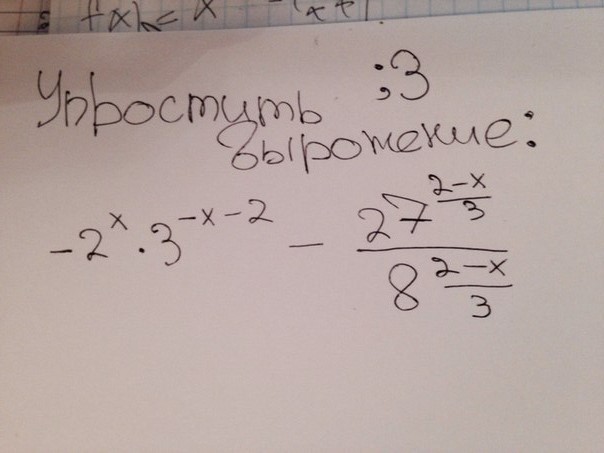 f(x) = x
Упростить ;3
выроженеие:
-2^x · 3^{-x-2} - \frac{27^{\frac{2-x}{3}}}{8^{\frac{2-x}{3}}}